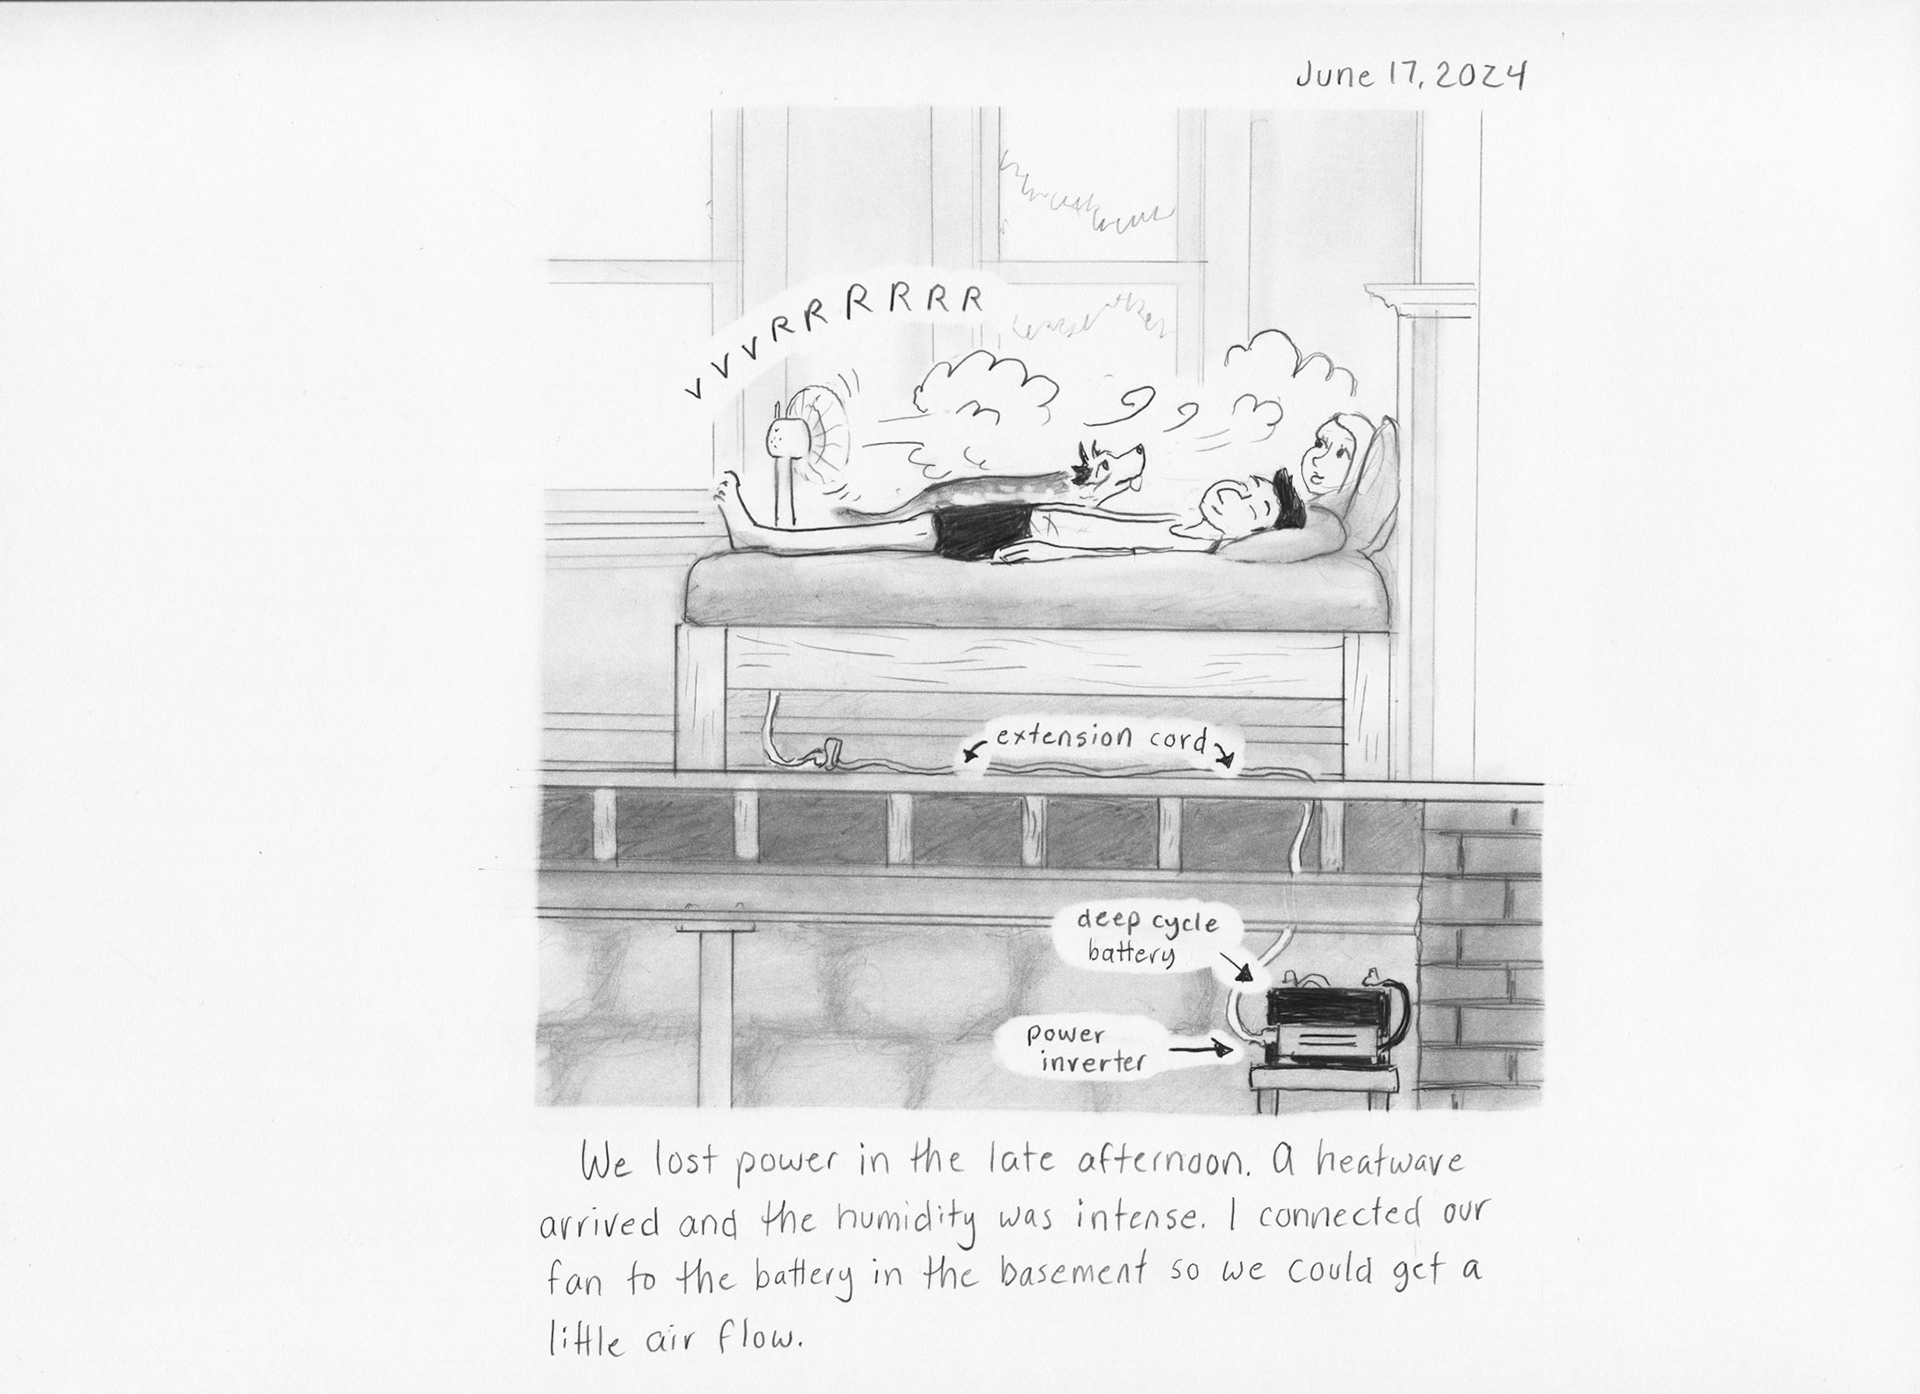 June 17, 2024
VVVRRRRRRR
extension cord
deep cycle
battery
power
inverter
We lost power in the late afternoon. A heatwave
arrived and the humidity was intense. I connected our
fan to the battery in the basement so we could get a
little air flow.